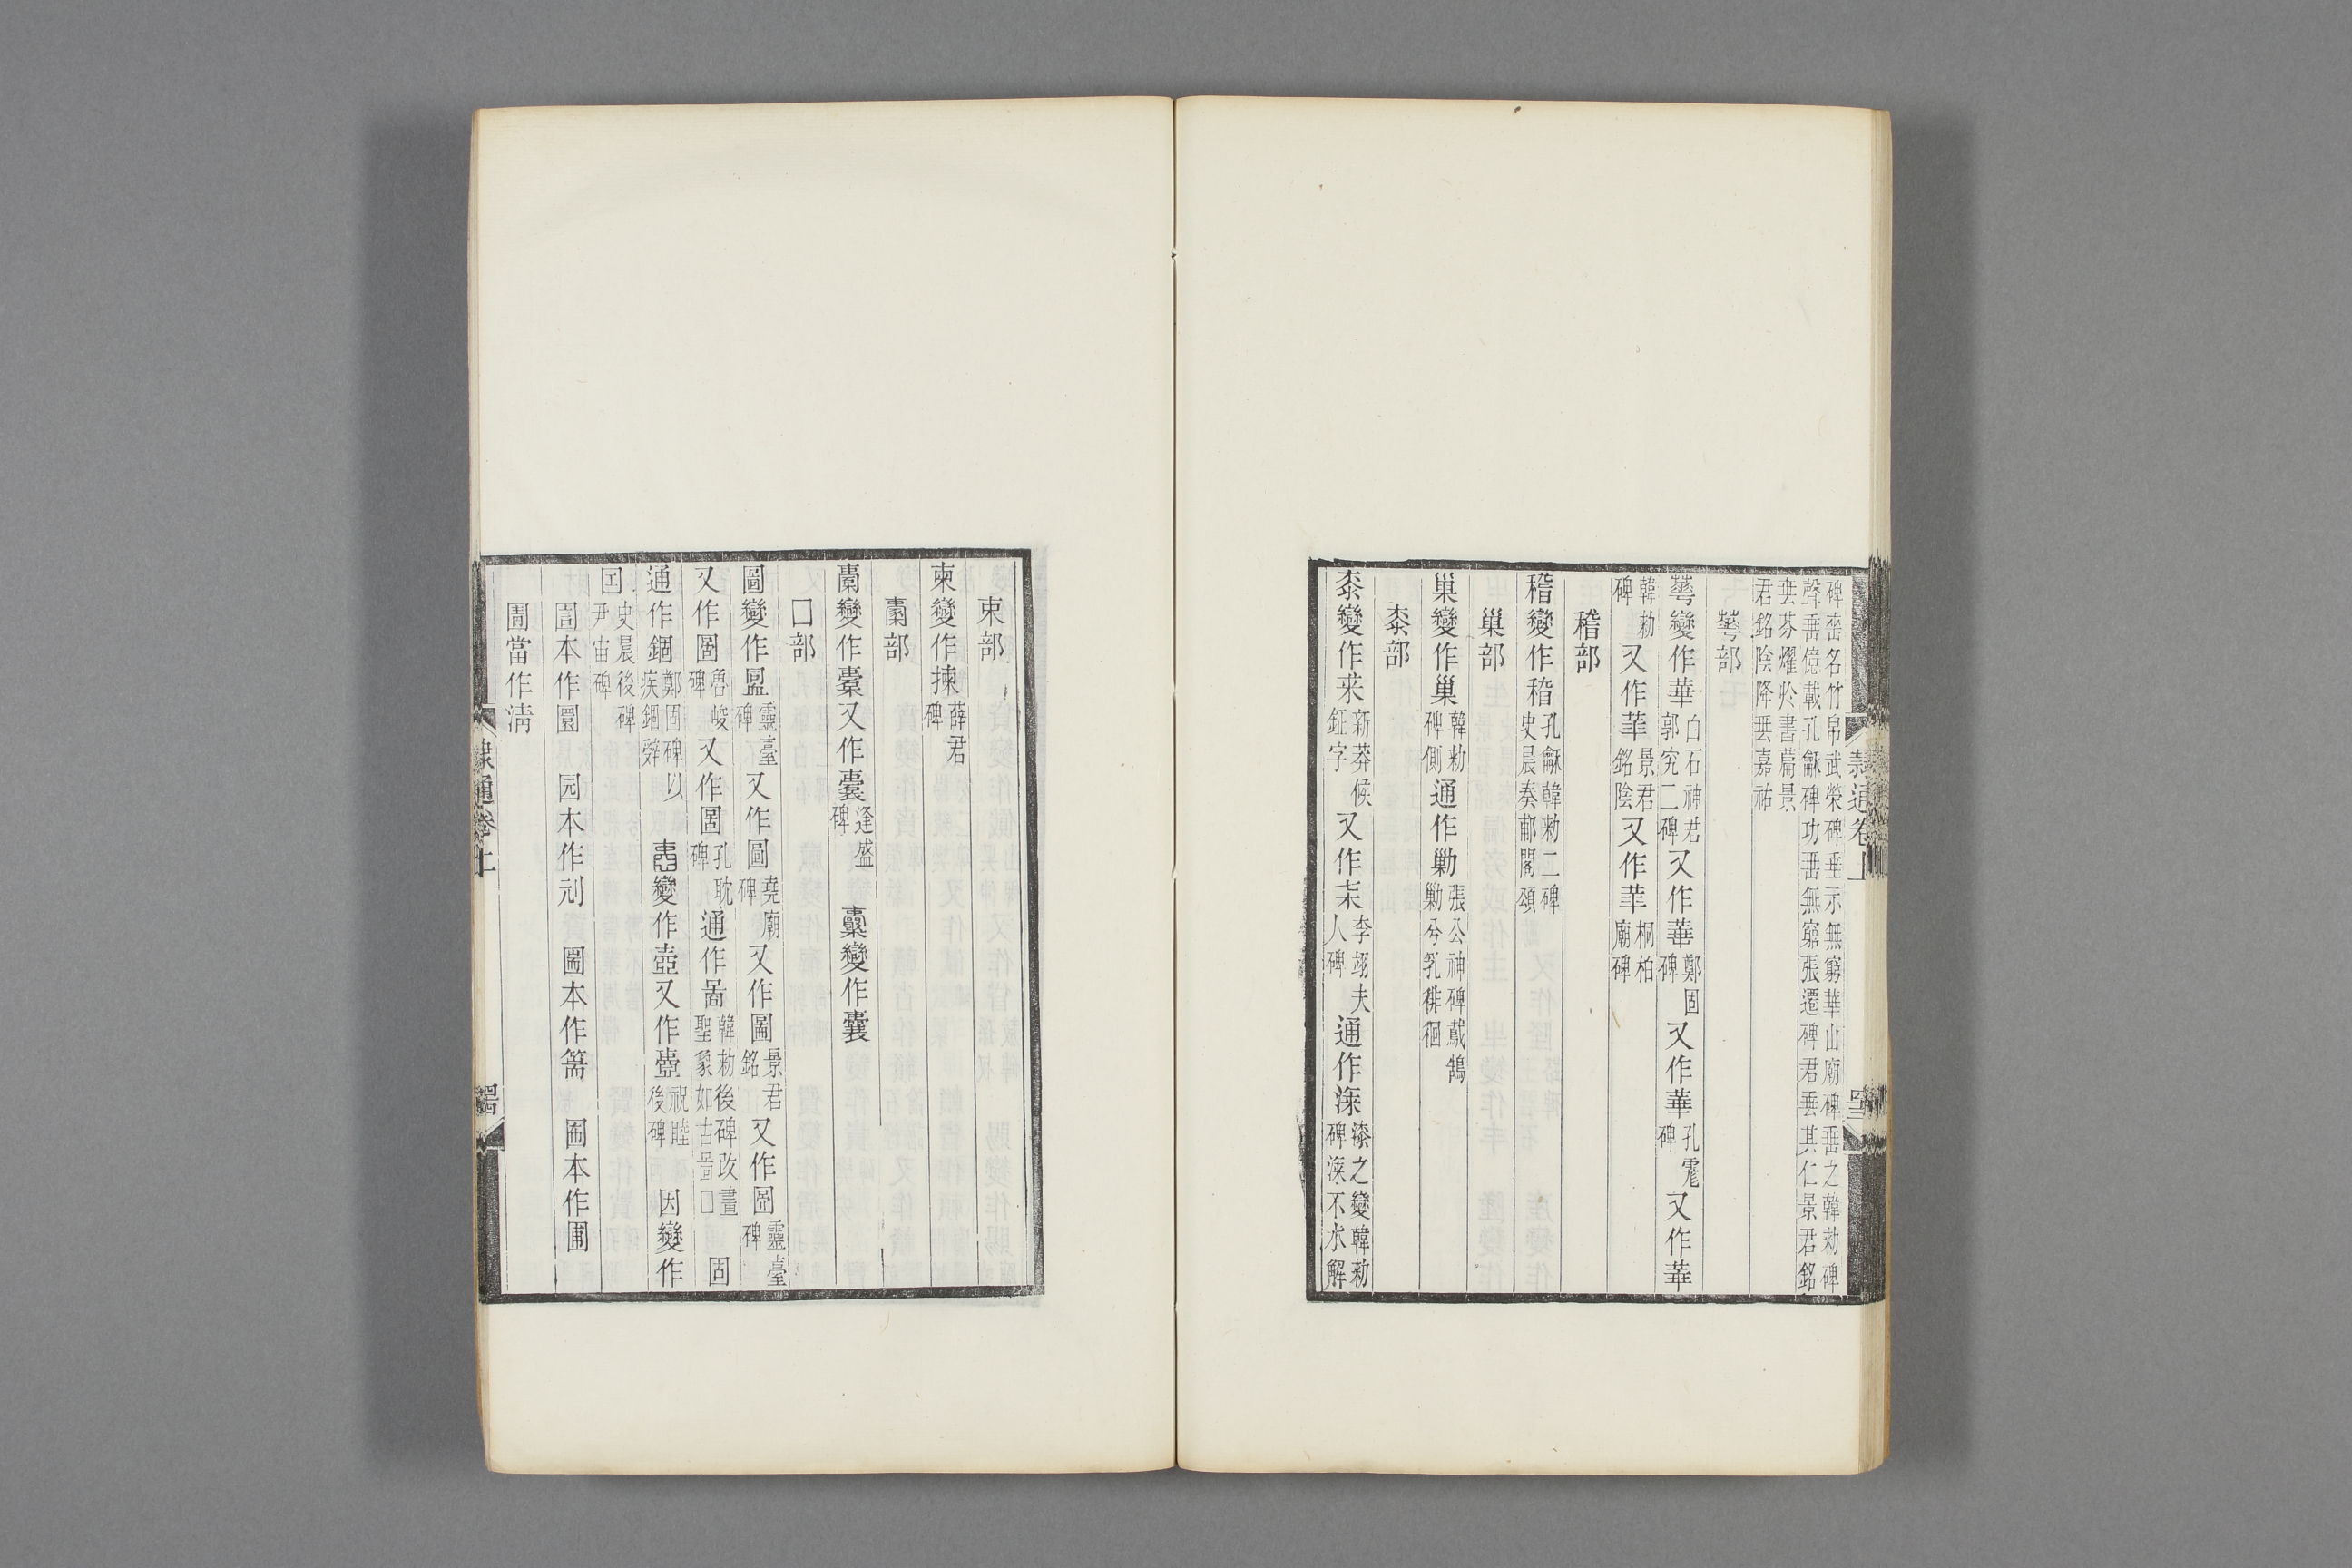 碑㘸名竹帛武榮碑垂示無窮華山廟碑垂之韓勑碑
聲垂億載孔龢碑功垂無窮張遷碑君垂其仁景君銘
垂芬燿於書萹景
君銘陰降垂嘉祐
蕐部
蕐變作華白石神君郭究二碑又作華鄭固碑又作華孔宙碑又作華
韓勑碑又作華景君銘陰又作華桐柏廟碑
稽部
稽變作䅲孔龢韓勑二碑史晨奏郙閣頌
巢部
巢變作巢韓勑碑側通作勦張公神碑鸛鵠勦兮乳徘徊
桼部
桼變作来新莽候鉦字又作耒李翊夫人碑通作㴃漆之變韓勑碑㴃不水解
隸通卷上
朿部
柬變作揀薛君碑
㯻部
㯻變作橐又作囊逢盛碑 橐變作囊
囗部
圖變作啚靈臺碑又作圖堯廟碑又作圖景君銘又作圖靈臺碑
又作圖魯峻碑又作圖孔耽碑通作啚韓勑後碑改畫聖象如古啚囗 固
通作錮鄭固碑以疾錮辭 𡈼變作壺又作壼祝睦後碑 因變作
囙史晨後碑尹宙碑
圎本作圜 园本作刓 圌本作篅 𡇈本作圃
圊當作清
隸通卷上